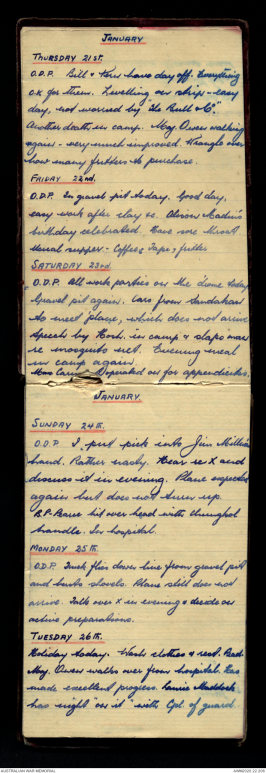 JANUARY
THURSDAY 21ST.
O.D.P. Bill & Ken have day off. Everything
O.K for them. Levelling on strip - easy
day, not worried by "the Bull & Co".
Another death in camp. Maj. Owen walking
again - very much improved. Wrangle over
how many fritters to purchase.
FRIDAY 22nd.
O.D.P. In gravel pit today. Good day,
easy work after stay so.
birthday celebrated. Have sore throat
Usual supper - Coffee, Tape, fritter
SATURDAY 23rd.
O.D.P. All work parties on the 'drome today
Gravel pit again. Cars from Sandakan
to meet plane, which does not arrive
Speech by Hosh. in camp & slaps man
re mosquito net. Evening meal
in camp again.
Operated on for appendicitis.
JANUARY.
SUNDAY 24TH.
O.D.P. I put pick into Jim
hand. Rather nasty. Hear re X and
discuss it in evening. Plane expected
again but does not turn up.
hit over head with chungkol
handle. In hospital.
MONDAY 25TH.
O.D.P. Truck flies down line from gravel pit
and busts shovels. Plane still does not
arrive. Talk over X in evening & decide on
active preparations.
TUESDAY 26TH.
Holiday today. Wash clothes & rest. Read
Maj. Owen walks over from hospital. Has
made excellent progress. Lannie Maddock
has night "on it" with Cpl. of guard.
AUSTRALIAN WAR MEMORIAL